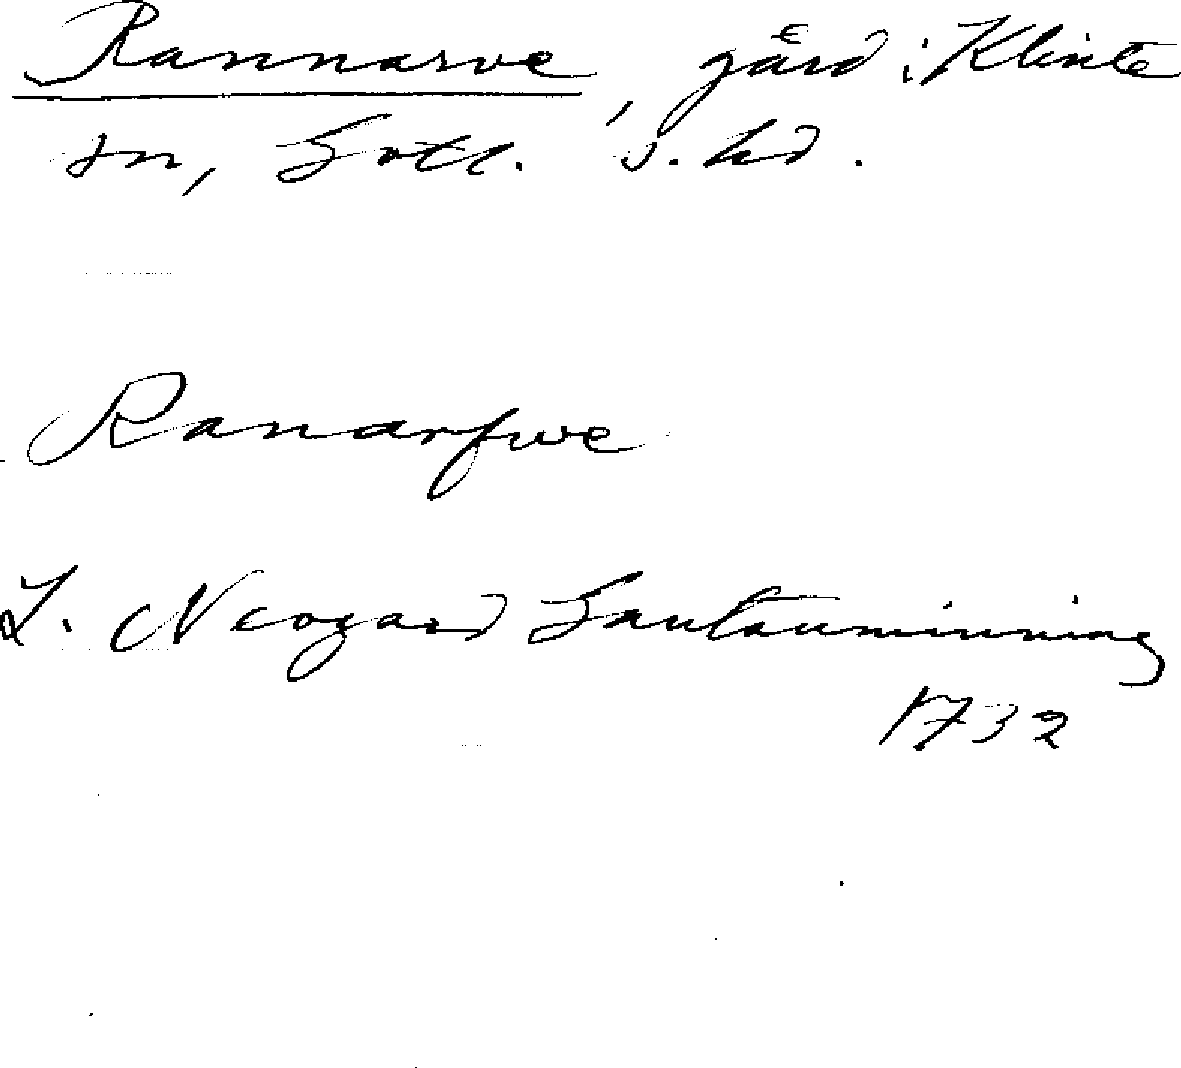 Rannarve, gård i Klinte
sn, Gotl. s. hd.
Ranarfwe
L. Neogard Gautauminning
1732